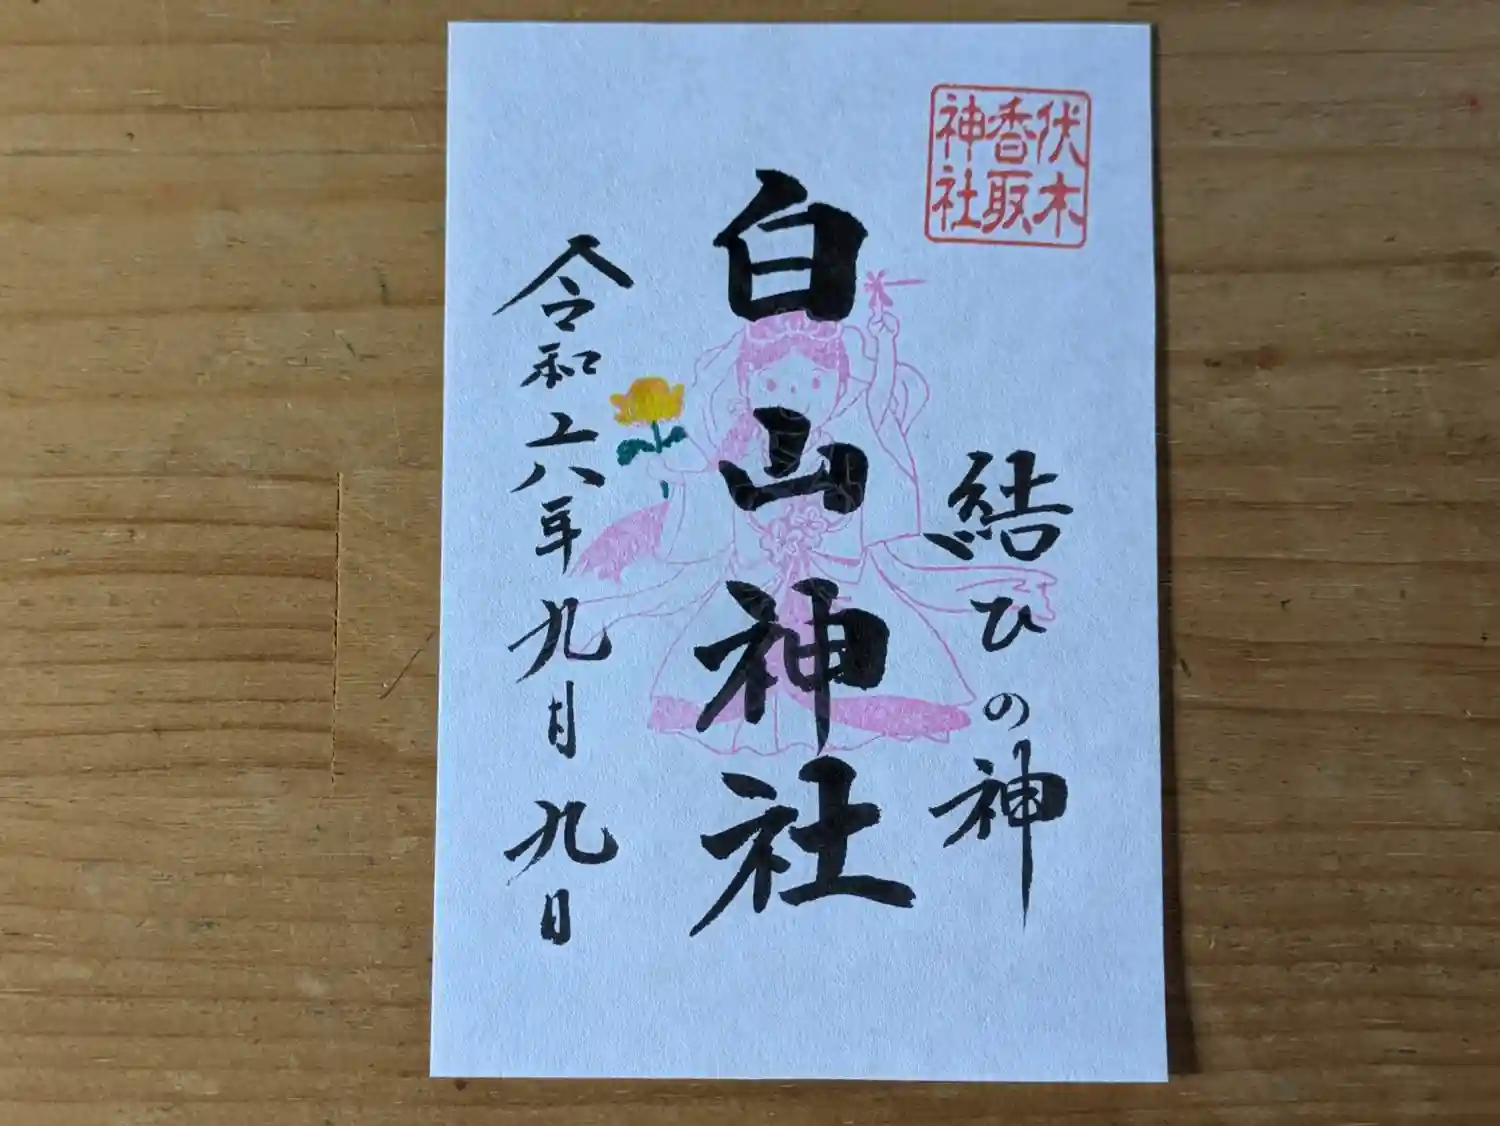 伏木
香取
神社
結ひの神
白山神社
令和六年九月九日